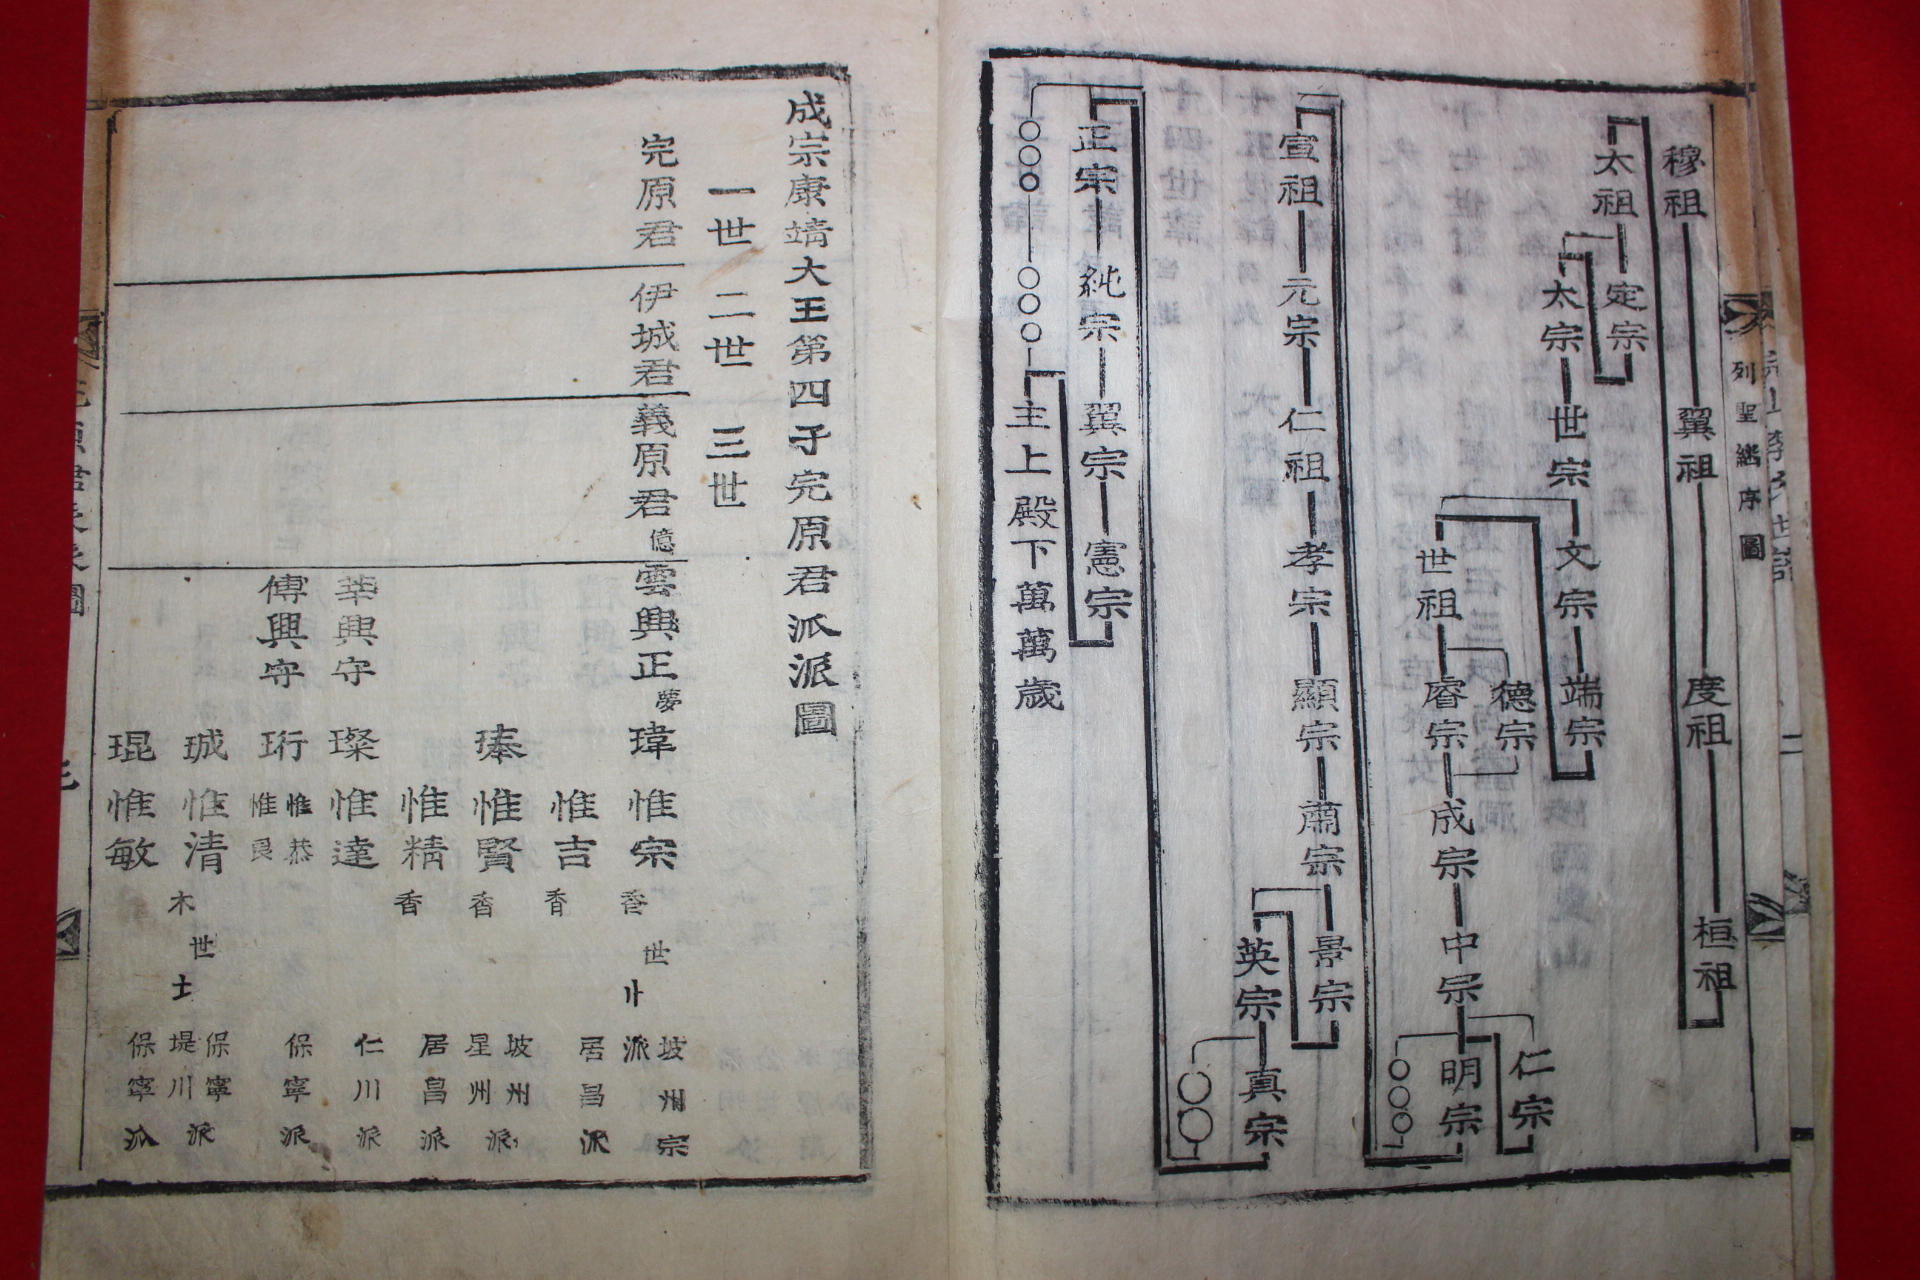 列聖繼序圖
穆祖 翼祖 度祖 桓祖
太祖 定宗
太宗 世宗 文宗 端宗
德宗
世祖 睿宗 成宗 中宗 仁宗
明宗
〇〇〇
宣祖 元宗 仁祖 孝宗 顯宗 肅宗 景宗
英宗 真宗
〇〇
正宗 純宗 翼宗 憲宗
〇〇〇 〇〇〇 主上殿下萬萬歲
成宗康靖大王第四子完原君派派圖
一世 二世 三世
完原君 伊城君 義原君億 雲興正夢 瑋 惟宗 香 世 坡州宗派
惟吉 香 居昌派
瑃 惟賢 香 坡州派 星州
惟精 香 居昌派
莘興守 璨 惟達 仁川派
傅興守 珩 惟恭 惟良 保寧派
珹 惟清 木 世 士 保寧派 堤川
琨 惟敏 保寧派